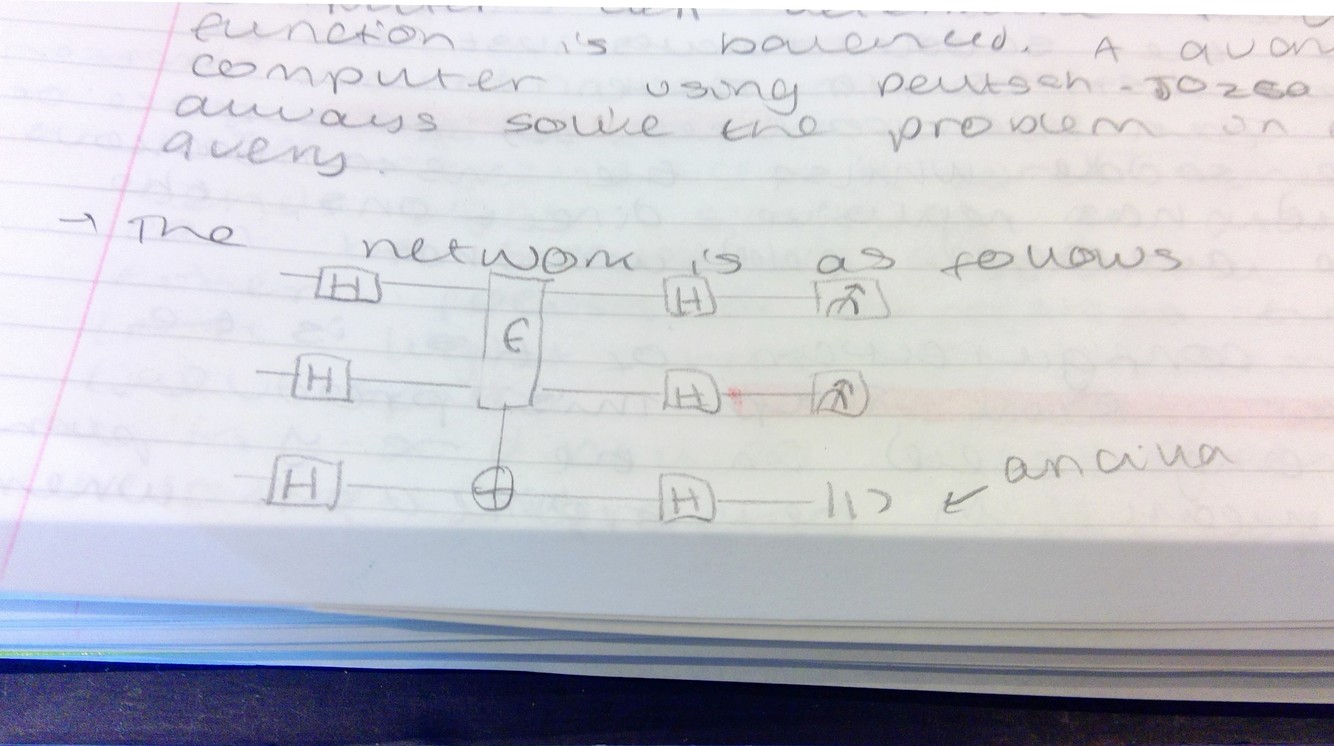 function is balanced. A quan
computer using Deutsch-Jozsa
always solve the problem in
query.
→ The network is as follows
H H
E
H H
H H |1> ← ancilla